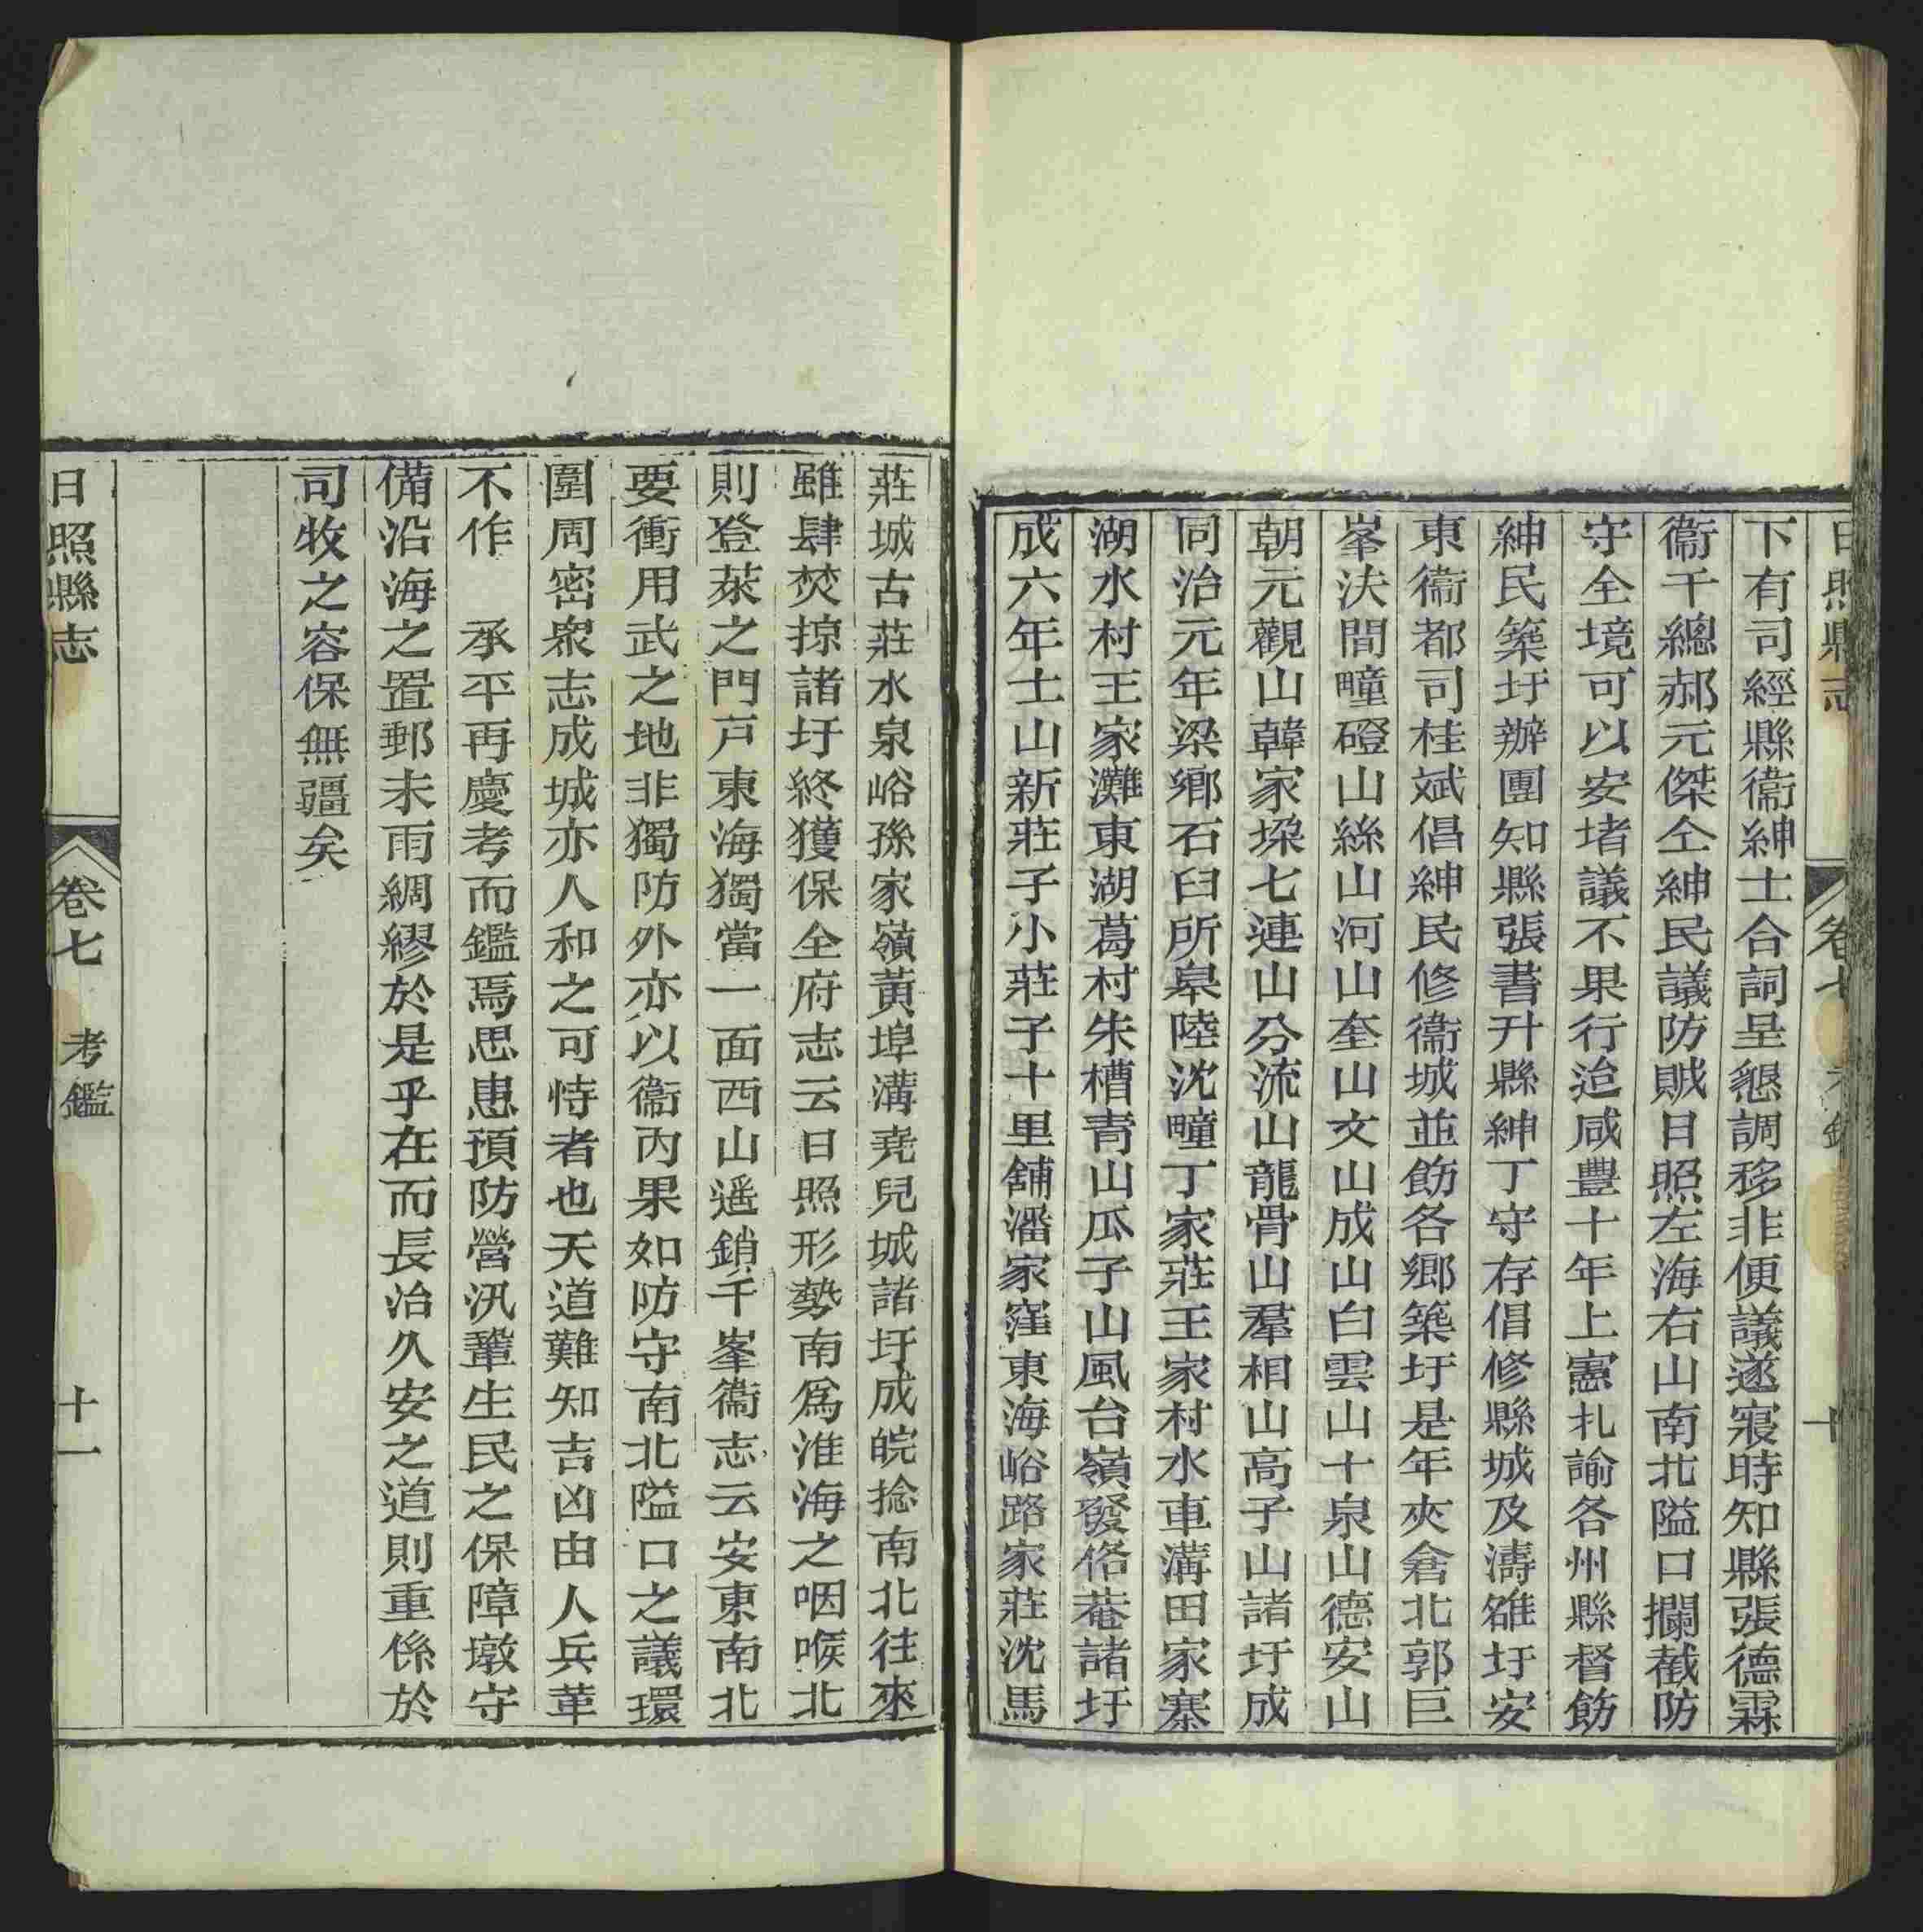 日照縣志
卷七
十
下有司經縣衞紳士合詞呈懇調移非便議遂寢時知縣張德霖
衞千總郝元傑仝紳民議防賊日照左海右山南北隘口攔截防
守全境可以安堵議不果行迨咸豐十年上憲札諭各州縣督飭
紳民築圩辦團知縣張書升縣紳丁守存倡修縣城及濤雒圩安
東衞都司桂斌倡紳民修衞城並飭各鄉築圩是年夾倉北郭巨
峯泱間疃磴山絲山河山奎山文山成山白雲山十泉山德安山
朝元觀山韓家垜七連山分流山龍骨山羣相山高子山諸圩成
同治元年梁鄉石臼所臯陸沈疃丁家莊王家村水車溝田家寨
湖水村王家灘東湖葛村朱槽青山瓜子山風台嶺發佫菴諸圩
成六年士山新莊子小莊子十里舖潘家窪東海峪路家莊沈馬
莊城古莊水泉峪孫家嶺黃埠溝堯兒城諸圩成皖捻南北往來
雖肆焚掠諸圩終獲保全府志云日照形勢南爲淮海之咽喉北
則登萊之門戸東海獨當一面西山遥銷千峯衞志云安東南北
要衝用武之地非獨防外亦以衞內果如防守南北隘口之議環
圍周密衆志成城亦人和之可恃者也天道難知吉凶由人兵革
不作　承平再慶考而鑑焉思患預防營汛鞏生民之保障墩守
備沿海之置郵未雨綢繆於是乎在而長治久安之道則重係於
司牧之容保無疆矣
日照縣志
卷七　考鑑
十一